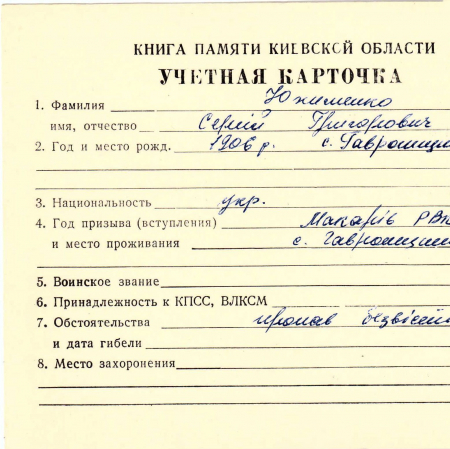 КНИГА ПАМЯТИ КИЕВСКОЙ ОБЛАСТИ
УЧЕТНАЯ КАРТОЧКА
1. Фамилия Юхименко
имя, отчество Сергій Григорович
2. Год и место рожд. 1906 р. с.
3. Национальность укр.
4. Год призыва (вступления) Макарів
и место проживания с.
5. Воинское звание
6. Принадлежность к КПСС, ВЛКСМ
7. Обстоятельства пропав
и дата гибели
8. Место захоронения